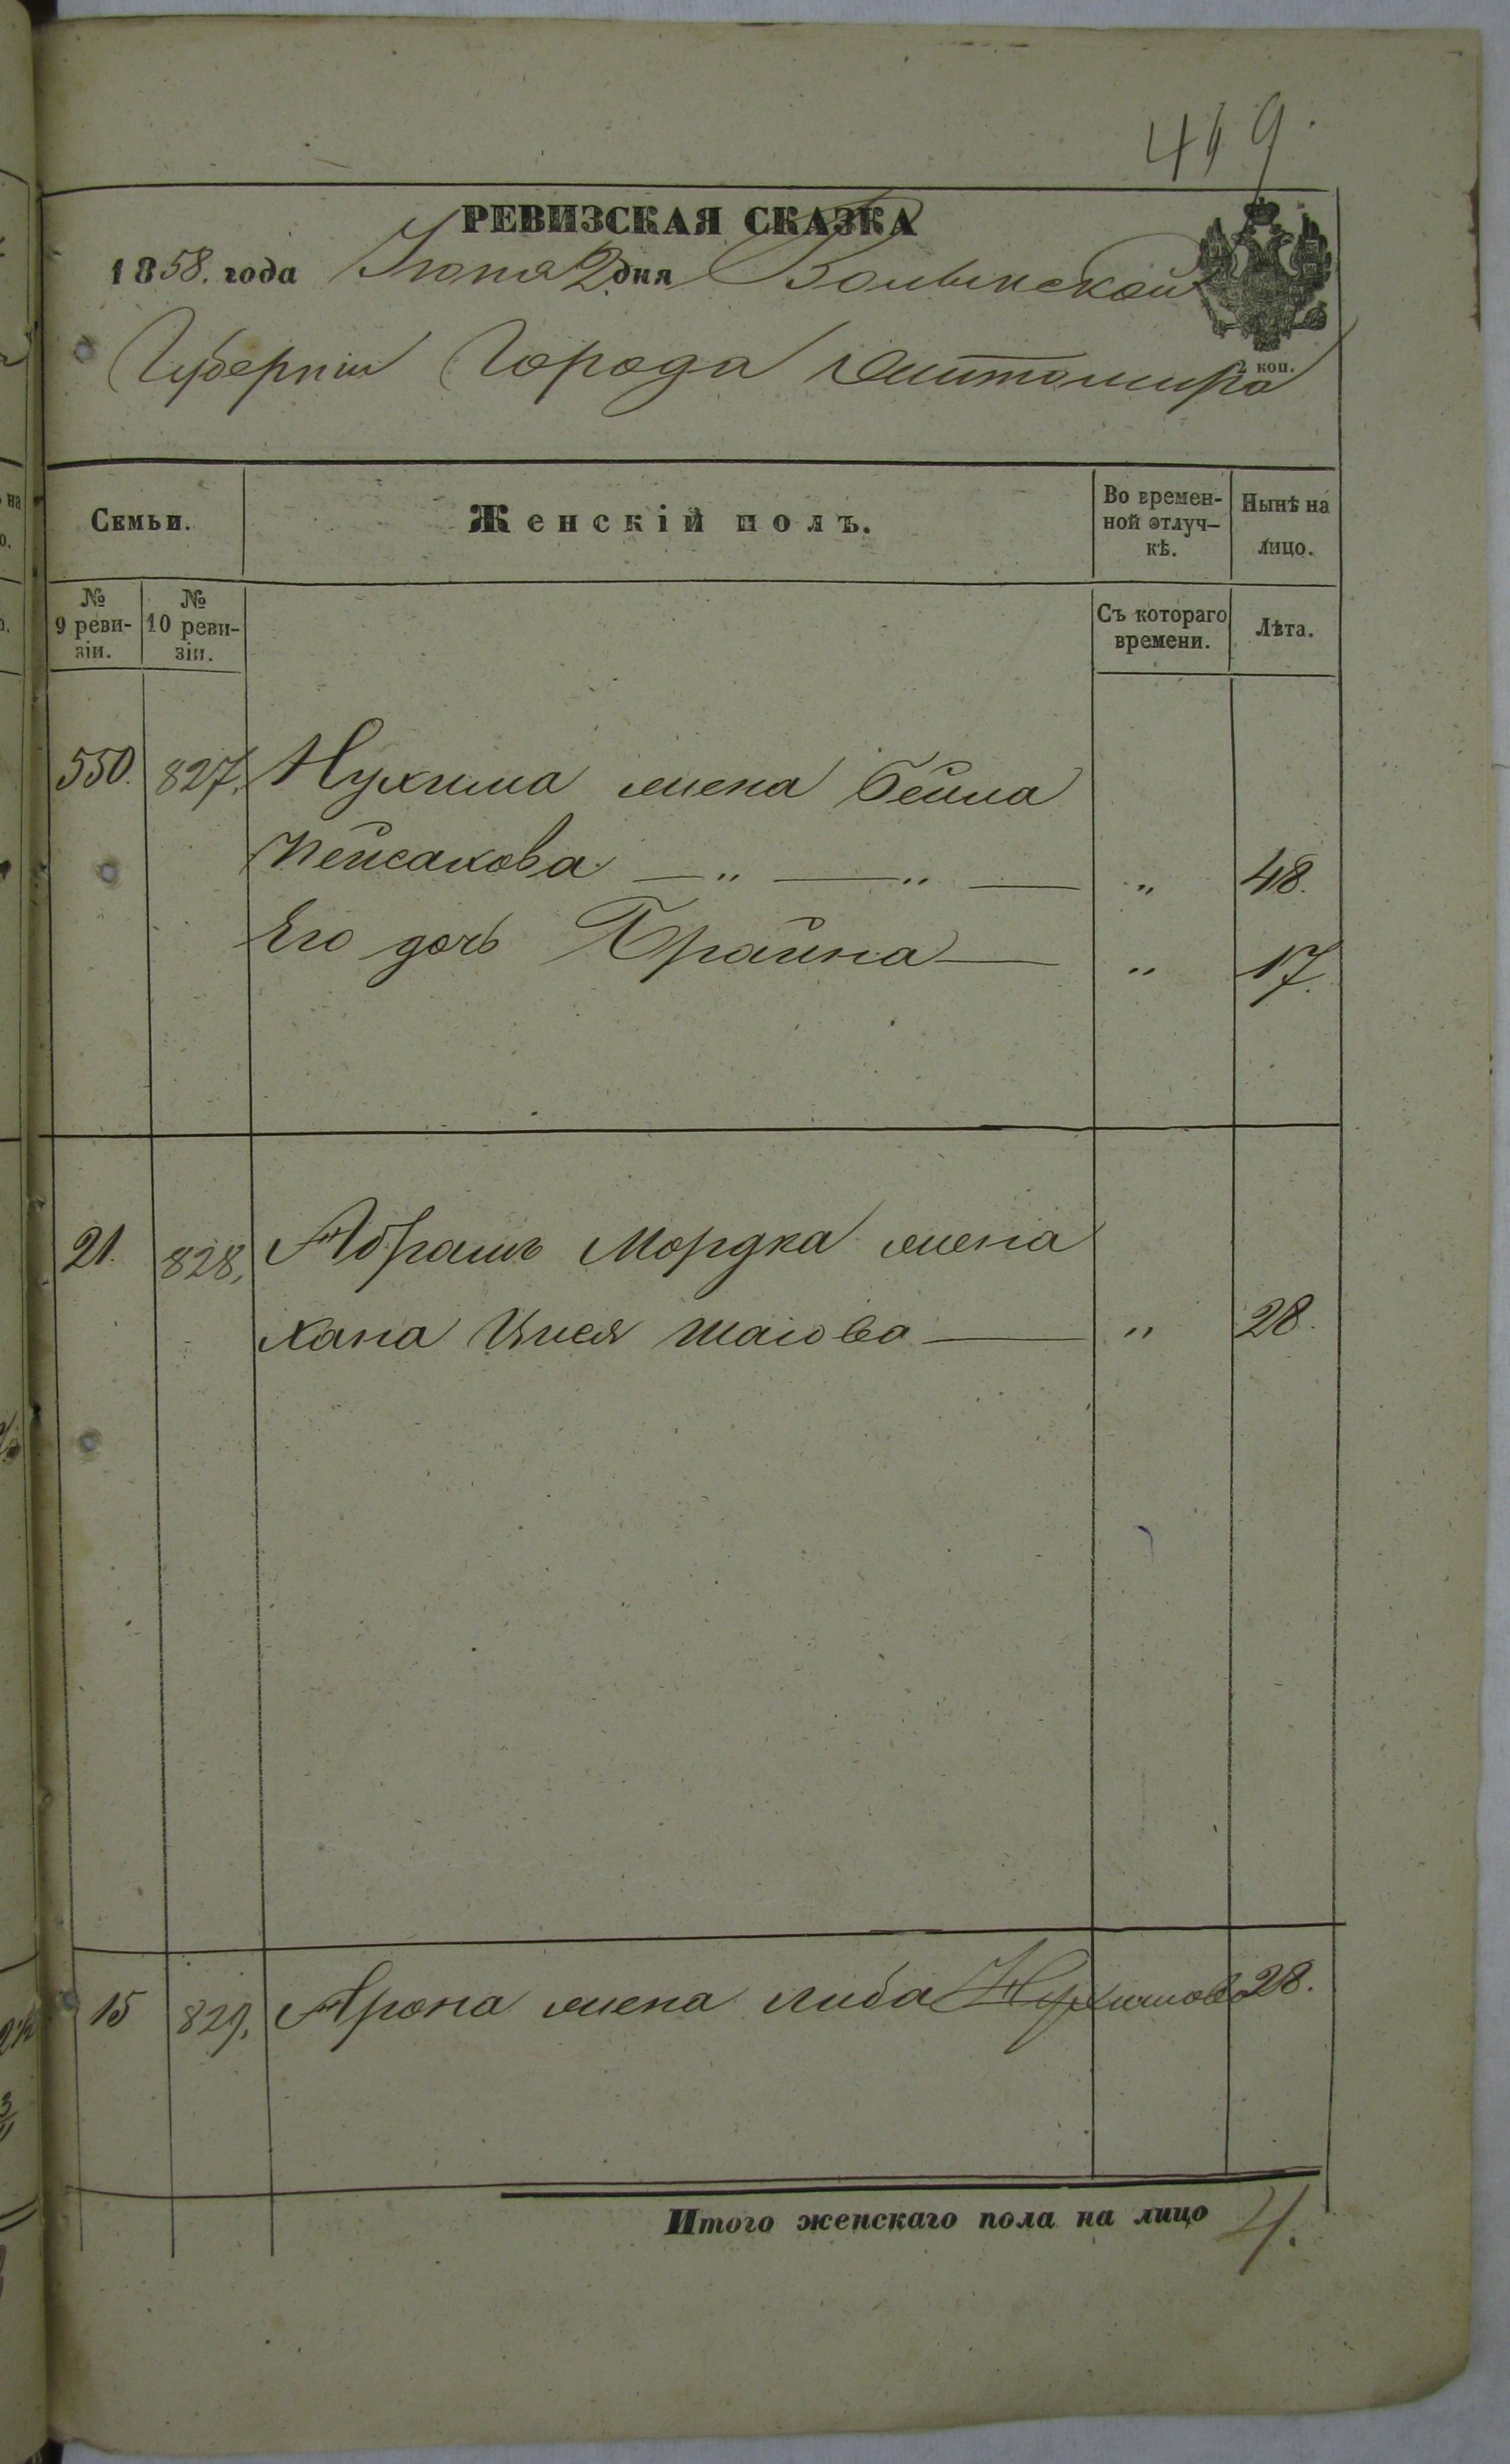 419.
РЕВИЗСКАЯ СКАЗКА
1858. года Іюня 2 дня Волынской
2 коп.
Губерніи Города Житомира
Семьи.
Женскій полъ.
Во времен-
ной отлуч-
кѣ.
Нынѣ на
лицо.
№
9 реви-
зіи.
№
10 реви-
зіи.
Съ котораго
времени.
Лѣта.
550. 827. Нухима жена Бейла
Пейсахова — „ — „ — „ 48.
Его дочь Брайна — „ 17.
21. 828, Абрамъ Мордка жена
Хана Шаіова — „ 28.
15 829, Арона жена Либа Нухимова 28.
Итого женскаго пола на лицо 4.